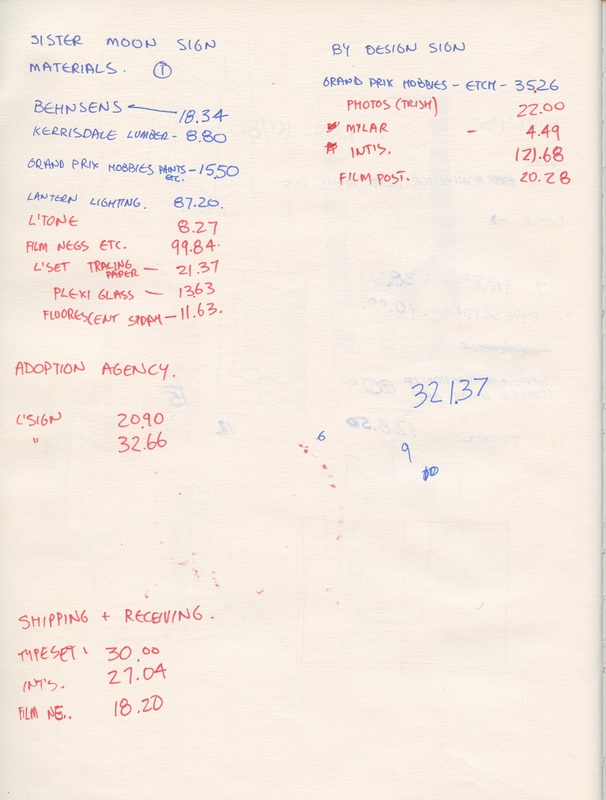 SISTER MOON SIGN
MATERIALS. ①
BEHNSENS 18.34
KERRISDALE LUMBER - 8.80
GRAND PRIX HOBBIES PAINTS ETC. - 15.50
LANTERN LIGHTING. 87.20.
L'TONE 8.27
FILM NEGS ETC. 99.84.
L'SET TRACING PAPER — 21.37
PLEXI GLASS — 13.63
FLUORESCENT — 11.63.
ADOPTION AGENCY.
L'SIGN 20.90
" 32.66
SHIPPING + RECEIVING.
TYPESET: 30.00
INT'S. 27.04
FILM NE.. 18.20
BY DESIGN SIGN
GRAND PRIX HOBBIES - ETCH - 35.26
PHOTOS (TRISH) 22.00
MYLAR - 4.49
INT'S. 121.68
FILM POST. 20.28
321.37
6
9
10